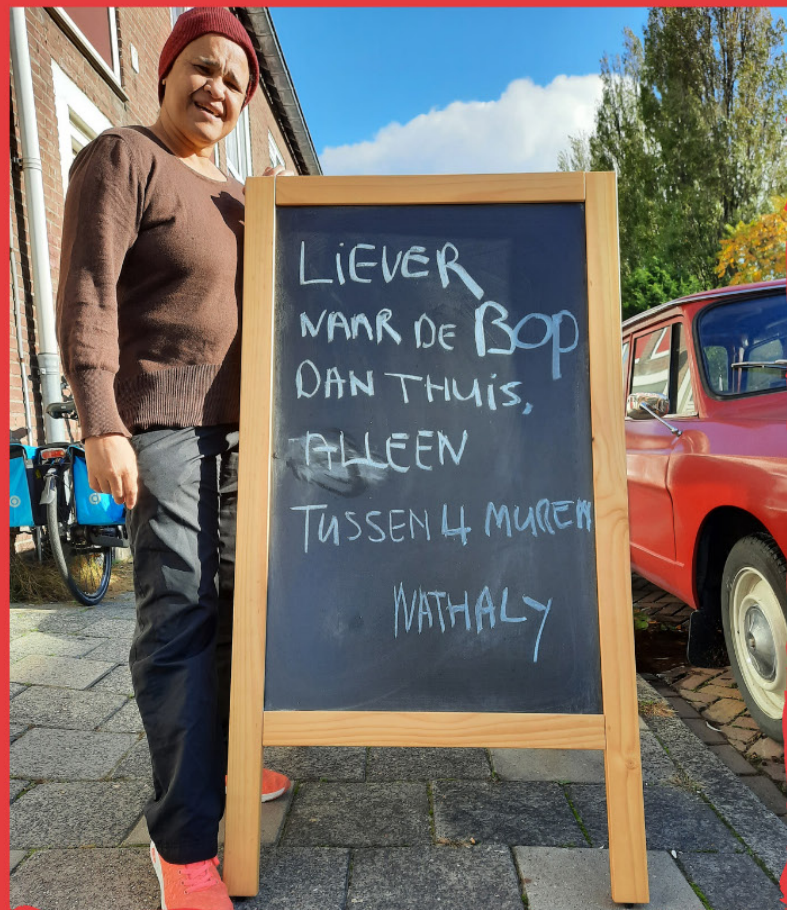 LiEVER
NAAR DE BOP
DAN THUiS,
ALLEEN
TUSSEN 4 MUREN
NATHALY